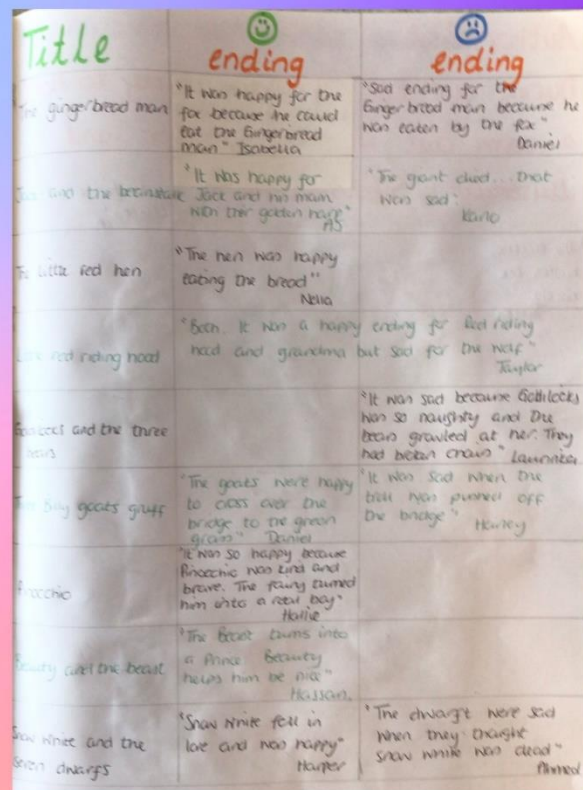 Title
ending
ending
The gingerbread man
"It was happy for the
fox because he could
eat the Gingerbread
man" Isabella
"Sad ending for the
Gingerbread man because he
was eaten by the fox"
Daniel
Jack and the beanstalk
"It was happy for
Jack and his mam
with their golden
AJ
"The giant died... that
was sad"
The little red hen
"The hen was happy
eating the bread"
Nella
Little red riding hood
"Both. It was a happy ending for Red riding
hood and grandma but sad for the wolf"
Taylor
and the three
bears
"It was sad because Goldilocks
was so naughty and the
bears growled at her. They
had broken chairs"
Billy goats gruff
"The goats were happy
to cross over the
bridge to the green
grass" Daniel
"It was sad when the
troll was pushed off
the bridge"
Harley
Pinocchio
"It was so happy because
Pinocchio was kind and
brave. The fairy turned
him into a real boy"
Hallie
Beauty and the beast
"The Beast turns into
a Prince Beauty
helps him be nice"
Hassan.
Snow white and the
seven dwarfs
"Snow white fell in
love and was happy"
Harper
"The dwarfs were sad
when they thought
snow white was dead"
Ahmed